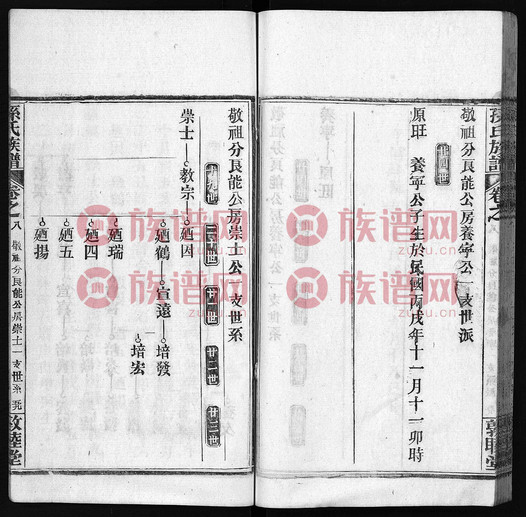 孫氏族譜
卷之八
敬祖分艮能公房養寧公一支世派
廿四世
原旺 養寧公子生於民國丙戌年十一月十一卯時
敬祖分艮能公房崇士公一支世系
十九世 二十世 廿一世 廿二世 廿三世
崇士 教宗 廼因
廼鶴 宣遠 培發
培宏
廼瑞
廼四
廼五
廼揚
孫氏族譜
卷之八
敬祖分艮能公房崇士一支世系
敦睦堂
族谱网